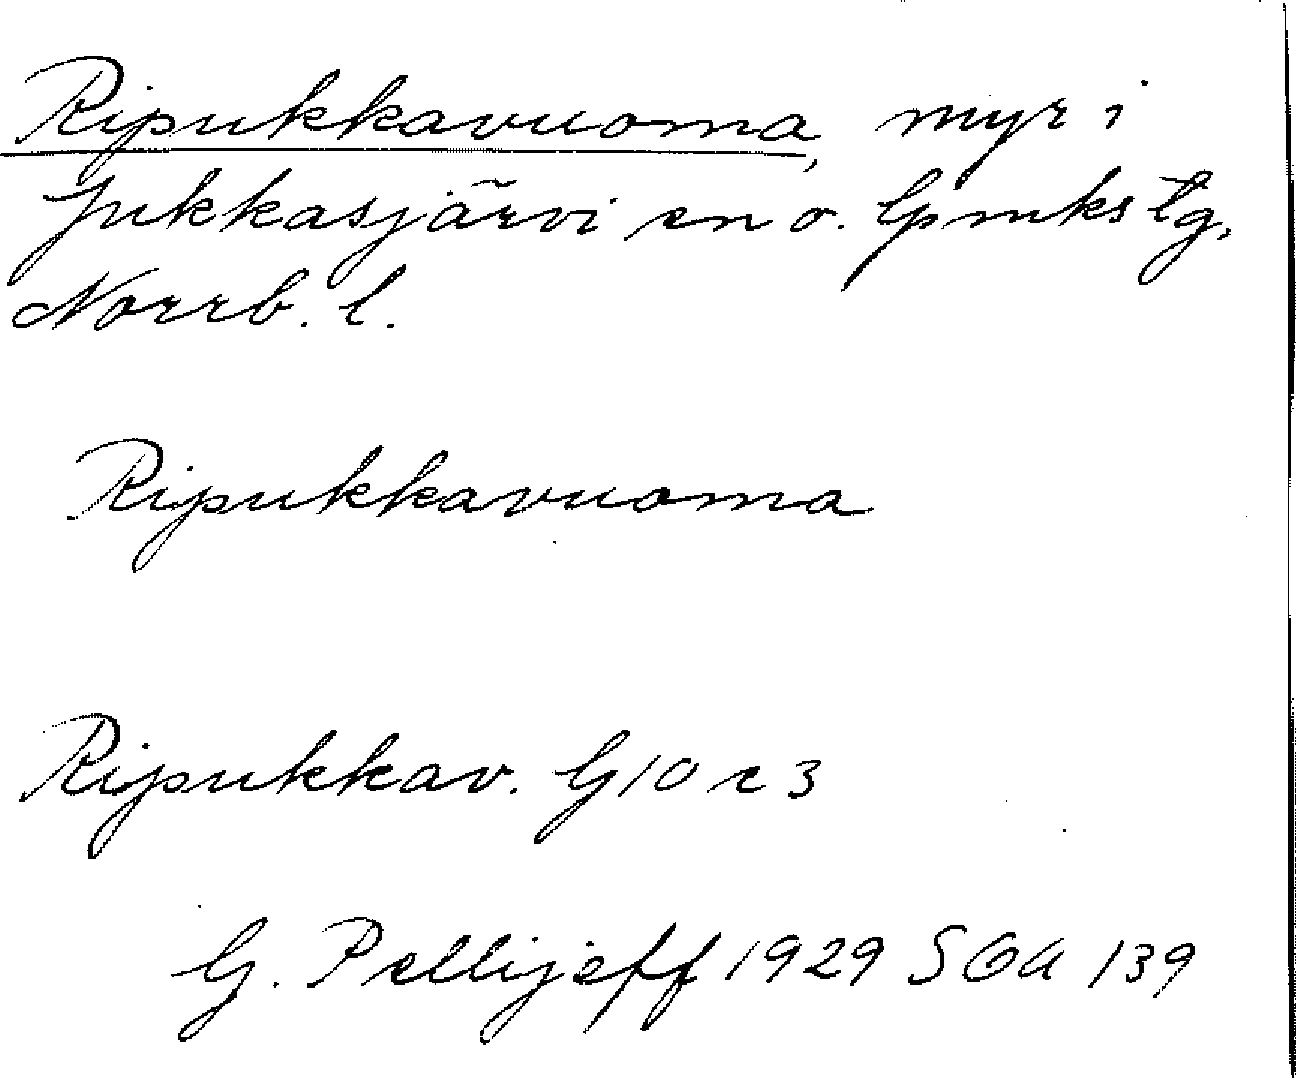 Ripukkavuoma, myr i
Jukkasjärvi sn o. lpmkstg,
Norrb. l.
Ripukkavuoma
Ripukkav. G10 c 3
G. Pellijeff 1929 SOA 139